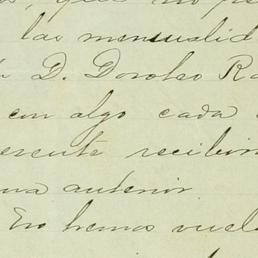 que no p
las mensualid
D. Doroteo Ra
con algo cada
recibir
una anterior
Ero hemos vuel